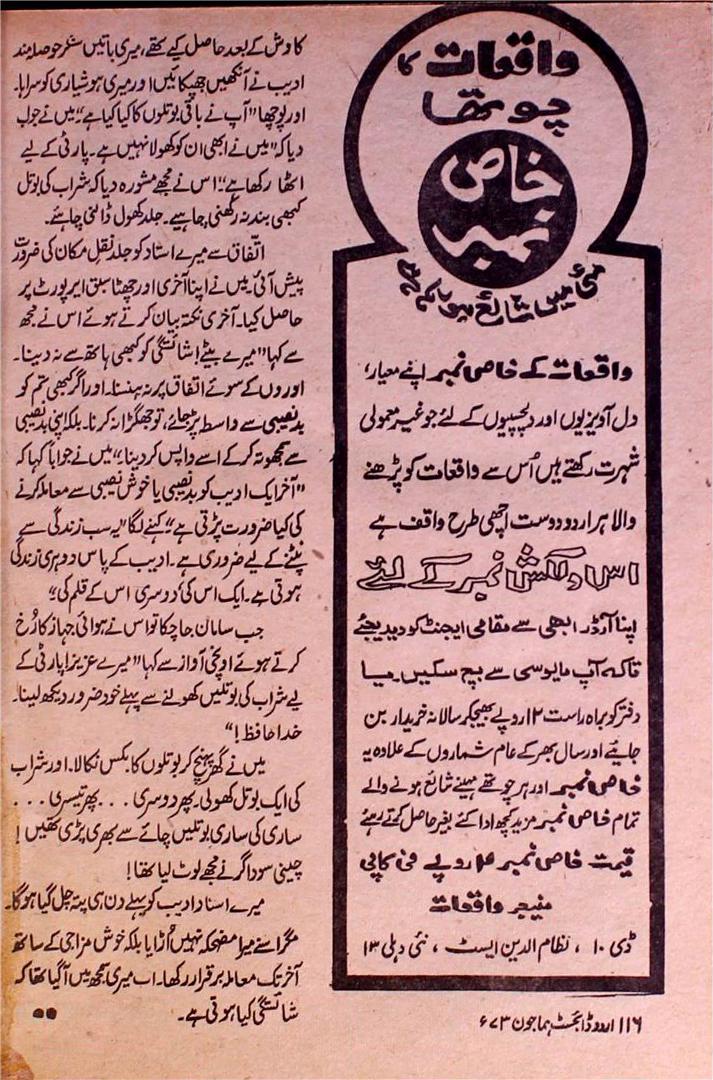 واقعات کا
چوتھا
خاص
نمبر
مئی میں شائع ہو رہا ہے
واقعات کے خاص نمبر اپنے معیار،
دل آویزیوں اور دلچسپیوں کے لئے جو غیر معمولی
شہرت رکھتے ہیں اُس سے واقعات کو پڑھنے
والا ہر اردو دوست اچھی طرح واقف ہے
اس دلکش نمبر کے لئے
اپنا آرڈر ابھی سے مقامی ایجنٹ کو دیدیجئے
تاکہ آپ مایوسی سے بچ سکیں۔ یا
دفتر کو براہ راست ۱۲ روپے بھیجکر سالانہ خریدار بن
جایئے اور سال بھر کے عام شماروں کے علاوہ یہ
خاص نمبر اور ہر چوتھے مہینے شائع ہونے والے
تمام خاص نمبر مزید کچھ ادا کئے بغیر حاصل کرتے رہیئے
قیمت خاص نمبر ۴ روپے فی کاپی
منیجر واقعات
ڈی ۱۰ ، نظام الدین ایسٹ ، نئی دہلی ۱۳
کاوش کے بعد حاصل کیے تھے، میری باتیں سنکر حوصلہ مند
ادیب نے آنکھیں جھپکائیں اور میری ہوشیاری کو سراہا۔
اور پوچھا "آپ نے باقی بوتلوں کا کیا کیا ہے" میں نے جواب
دیا کہ "میں نے ابھی ان کو کھولا نہیں ہے۔ پارٹی کے لیے
اٹھا رکھا ہے" اس نے مجھے مشورہ دیا کہ شراب کی بوتل
کبھی بند نہ رکھنی چاہیے۔ جلد کھول ڈالنی چاہئے۔
اتفاق سے میرے استاد کو جلد نقل مکان کی ضرورت
پیش آئی۔ میں نے اپنا آخری اور چھٹا سبق ایرپورٹ پر
حاصل کیا۔ آخری نکتہ بیان کرتے ہوئے اس نے مجھ
سے کہا "میرے بیٹے! شائستگی کو کبھی ہاتھ سے نہ دینا۔
اوروں کے سوئے اتفاق پر نہ ہنسنا۔ اور اگر کبھی تم کو
بدنصیبی سے واسطہ پڑ جائے، تو جھگڑا نہ کرنا۔ بلکہ اپنی بدنصیبی
سے سمجھوتہ کر کے اسے واپس کر دینا۔" میں نے جواباً کہا کہ
"آخر ایک ادیب کو بدنصیبی یا خوش نصیبی سے معاملہ کرنے
کی کیا ضرورت پڑتی ہے" کہنے لگا "یہ سب زندگی سے
نپٹنے کے لیے ضروری ہے۔ ادیب کے پاس دوہری زندگی
ہوتی ہے۔ ایک اس کی دوسری اس کے قلم کی"
جب سامان جا چکا تو اس نے ہوائی جہاز کا رُخ
کرتے ہوئے اونچی آواز سے کہا "میرے عزیز! پارٹی کے
لیے شراب کی بوتلیں کھولنے سے پہلے خود ضرور دیکھ لینا۔
خدا حافظ!"
میں نے گھر پہنچ کر بوتلوں کا بکس نکالا۔ اور شراب
کی ایک بوتل کھولی۔ پھر دوسری ... پھر تیسری ...
ساری کی ساری بوتلیں چائے سے بھری پڑی تھیں!
چینی سوداگر نے مجھے لوٹ لیا تھا!
میرے استاد ادیب کو پہلے دن ہی پتہ چل گیا ہوگا۔
مگر اسنے میرا مضحکہ نہیں اُڑایا بلکہ خوش مزاجی کے ساتھ
آخر تک معاملہ برقرار رکھا۔ اب میری سمجھ میں آ گیا تھا کہ
شائستگی کیا ہوتی ہے۔
۱۱۶ اردو ڈائجسٹ ہما جون ۷۳ء